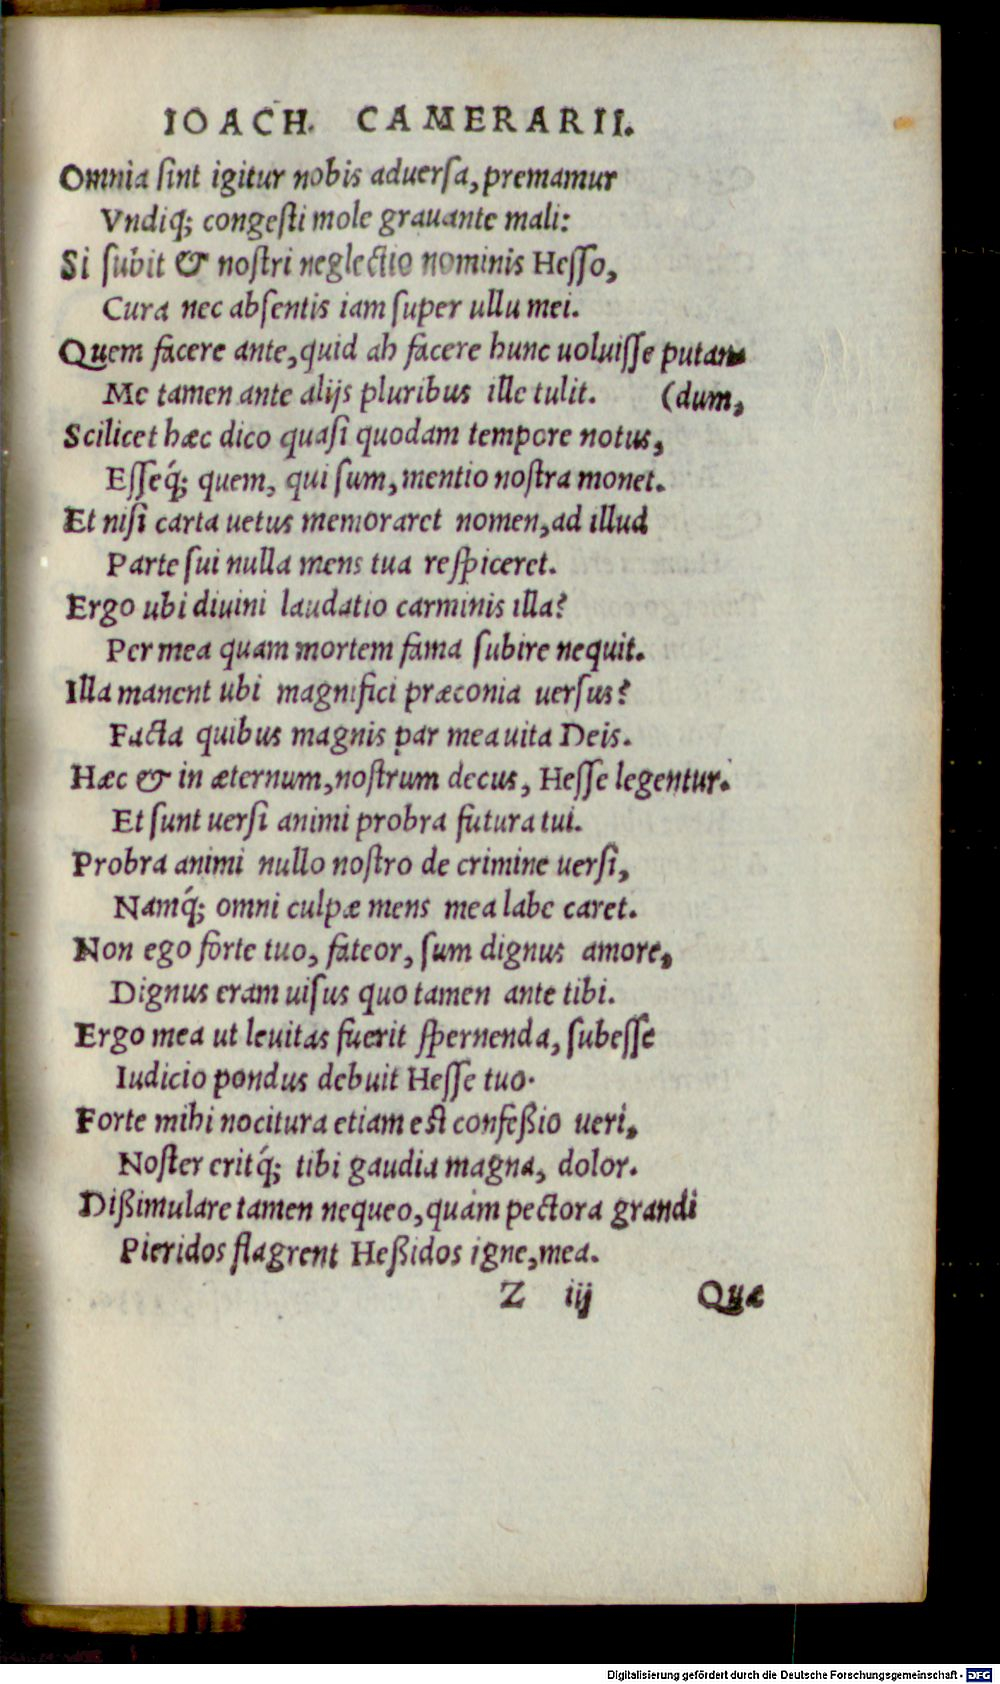 IOACH. CAMERARII.
Omnia sint igitur nobis aduersa, premamur
Vndiq; congesti mole grauante mali:
Si subit & nostri neglectio nominis Hesso,
Cura nec absentis iam super ullu mei.
Quem facere ante, quid ah facere hunc uoluisse putan-
Me tamen ante alijs pluribus ille tulit. (dum,
Scilicet hæc dico quasi quodam tempore notus,
Esseq́; quem, qui sum, mentio nostra monet.
Et nisi carta uetus memoraret nomen, ad illud
Parte sui nulla mens tua respiceret.
Ergo ubi diuini laudatio carminis illa?
Per mea quam mortem fama subire nequit.
Illa manent ubi magnifici præconia uersus?
Facta quibus magnis par mea uita Deis.
Hæc & in æternum, nostrum decus, Hesse legentur.
Et sunt uersi animi probra futura tui.
Probra animi nullo nostro de crimine uersi,
Namq́; omni culpæ mens mea labe caret.
Non ego forte tuo, fateor, sum dignus amore,
Dignus eram uisus quo tamen ante tibi.
Ergo mea ut leuitas fuerit spernenda, subesse
Iudicio pondus debuit Hesse tuo.
Forte mihi nocitura etiam est confeßio ueri,
Noster eritq́; tibi gaudia magna, dolor.
Dißimulare tamen nequeo, quàm pectora grandi
Pieridos flagrent Heßidos igne, mea.
Z iij Quæ
Digitalisierung gefördert durch die Deutsche Forschungsgemeinschaft - DFG